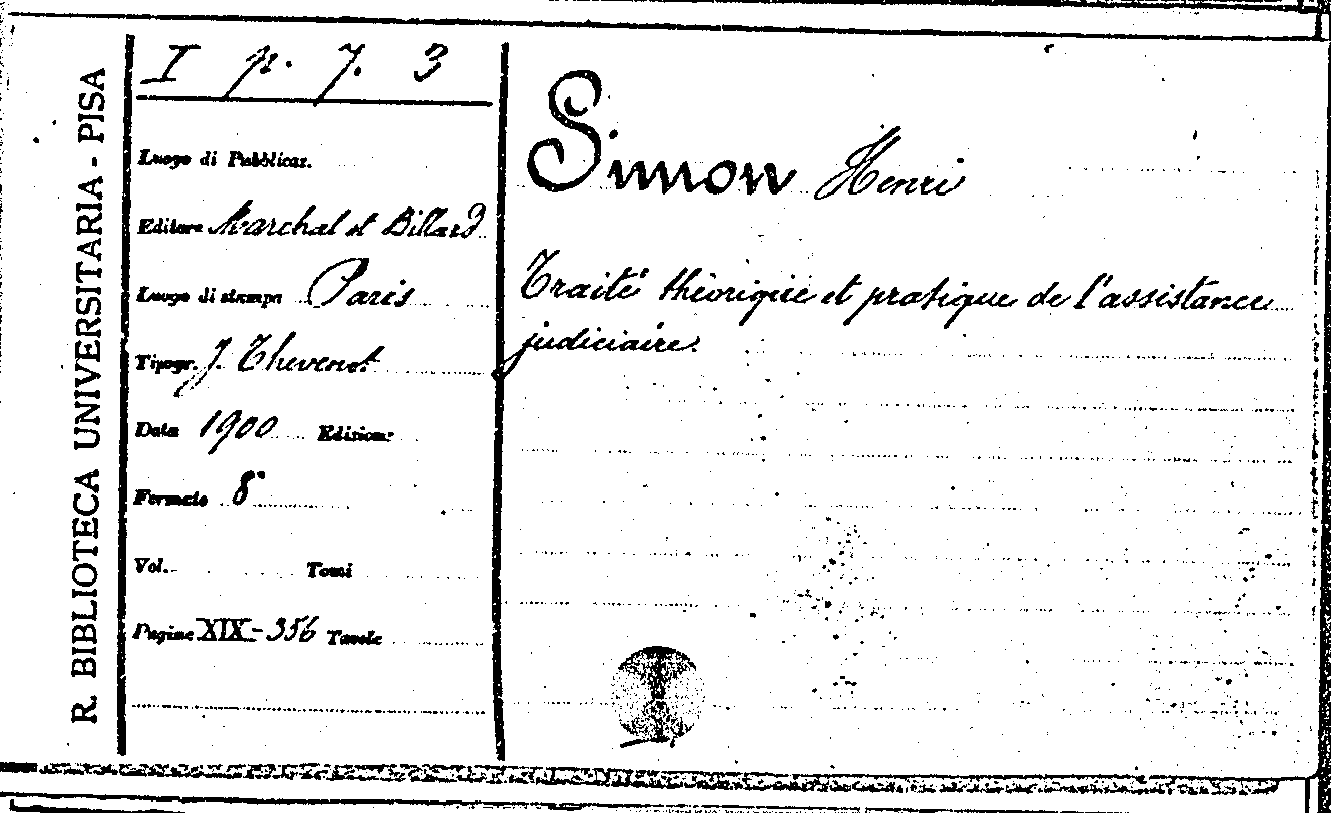 R. BIBLIOTECA UNIVERSITARIA - PISA
I p. 7. 3
Luogo di Pubblicaz.
Editore Marchal et Billard
Luogo di stampa Paris
Tipogr. J. Thevenot
Data 1900 Edizione
Formato 8°
Vol. Tomi
Pagine XIX-356 Tavole
Simon Henri
Traité théorique et pratique de l'assistance
judiciaire.